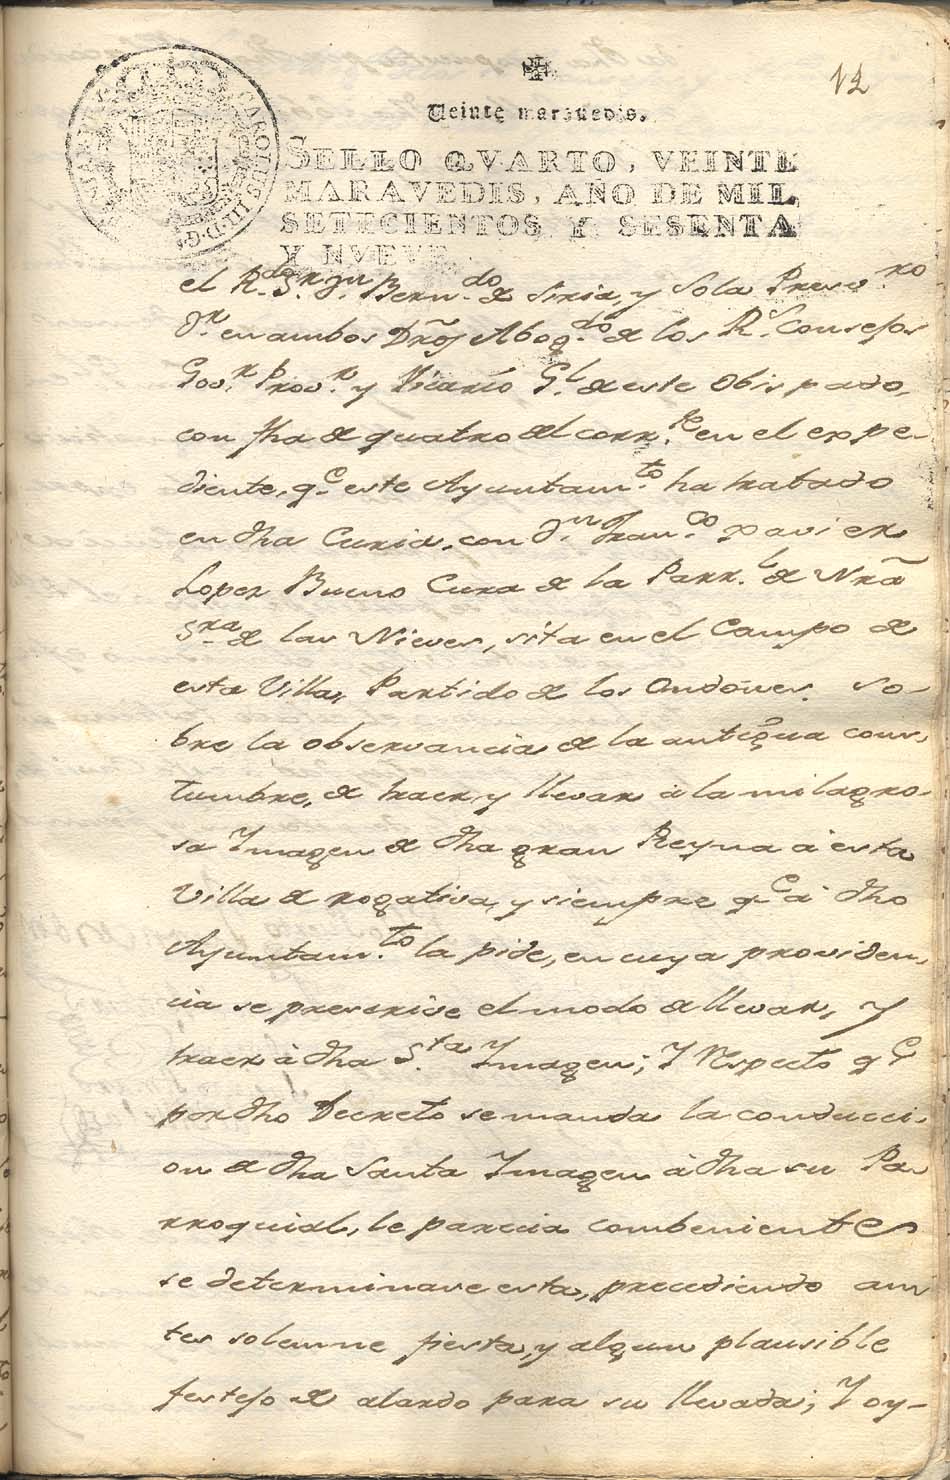 12
Veinte maravedis.
CAROLUS III D. G.
SELLO QVARTO, VEINTE
MARAVEDIS, AÑO DE MIL
SETECIENTOS Y SESENTA
Y NVEVE
el R.do S.r D.n Bern.do de Siria, y Sola Presv.ro
D.r en ambos Dr̃os Abog.do de los R.s Consejos
Gov.r Prov.r y Vicario G.l de este Obispado,
con fha de quatro del corr.te en el expe-
diente, q.e este Ayuntam.to ha tratado
en dha Curia, con D.n Fran.co Xavier
Lopez Bueno Cura de la Parr.l de Nrã
S.ra de las Nieves, sita en el Campo de
esta Villa, Partido de los Ondoñes, so-
bre la observancia de la antigua cons-
tumbre, de traer, y llevar à la milagro-
sa Ymagen de dha gran Reyna à esta
Villa de rogativa, y siempre q.e à dho
Ayuntam.to la pide, en cuya providen-
cia se prescrive el modo de llevar, y
traer à dha S.ta Ymagen; Y Respecto q.e
por dho Decreto se manda la conducci-
on de dha Santa Ymagen à dha su Pa-
rroquial, le parecia combeniente
se determinase esta, precediendo an-
tes solemne fiesta, y algun plausible
festejo de alardo para su llevada; Y oy-